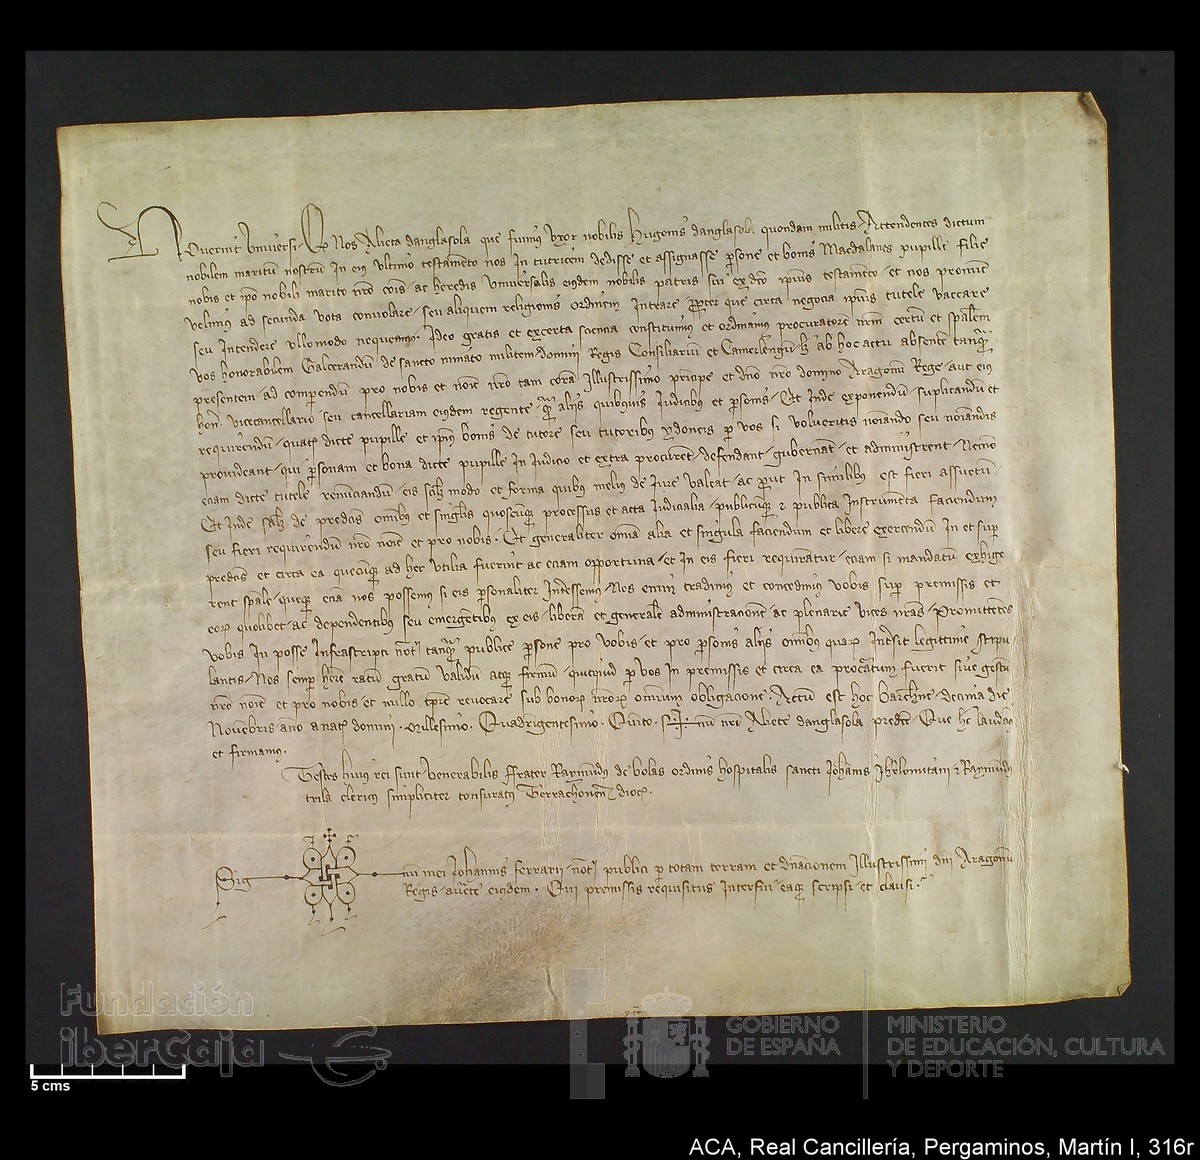 Noverint Universi Q Nos Alieta danglasola que fuimus uxor nobilis Hugonis danglasola quondam militis Attendentes dictum
nobilem maritum nostrum in eius ultimo testamento nos in tutricem dedisse et assignasse persone et bonis Magdalenes pupille filie
nobis et ipso nobili marito nro cois ac heredis universalis eiusdem nobilis patris sui ex dco ipius testamento et nos
velimus ad secunda vota convolare seu aliquem religionis ordinem intrare propter que circa negocia ipius tutele vaccare
seu intendere ullo modo nequeamus Ideo gratis et ex certa sciencia constituimus et ordinamus procuratore nrm certu et spalem
vos honorabilem Galcerandum de sancto minato militem domini Regis Consiliarium et Camerlengum licet ab hoc actu absente tanqr
presentem ad comperendum pro nobis et noie nro tam cora Illustrissimo principe et dno nro domino Aragonum Rege aut eius
honr vicecancellario seu cancellariam eiusdem regente qr alijs quibusuis Judicibus et personis Et inde exponendum supplicandum et
requirendum quatenus dicte pupille et ipius bonis de tutore seu tutoribus ydoneis per vos si volueritis noiando seu noiandis
provideant qui personam et bona dicte pupille in iudicio et extra procurent defendant gubernent et administrent Necno
eciam dicte tutele renunciandum eis scilicet modo et forma quibus melius de Jure valeat ac prout in similibus est fieri assuetum
Et inde de predictis omnibus et singulis quoscumque processus et acta Judicialia publicumque et publica Instrumenta faciendum
seu fieri requirendum nro noie et pro nobis Et generaliter omnia alia et singula faciendum et libere exercendum in et super
predictis et circa ea quecumque ad hec utilia fuerint ac eciam opportuna et in eis fieri requirantur eciam si mandatum exhige
rent spale queque ecia nos possemus si eis personaliter interessemus Nos enim tradimus et concedimus vobis super premissis et
eorum quolibet ac dependentibus seu emergentibus ex eis liberam et generale administracione ac plenarie vices nras Promittentes
vobis in posse infrascripti notarii tanqr publice persone pro vobis et pro personis alijs omnibus quarum intersit legittime stipu
lantis Nos semper habere ratum gratum validum atque firmum quicquid per vos in premissis et circa ea procuratum fuerit sive gestum
nro noie et pro nobis et nullo tempore revocare sub bonorum nrorum omnium obligacione Actum est hoc Barchne decima die
Novembris anno a nat domini Millesimo Quadringentesimo Quinto Sig num nri Aliete danglasola predicte Que hec laudamus
et firmamus
Testes huius rei sunt venerabilis ffrater Raymundus de bolas ordinis hospitalis sancti Johannis Jhrlomitani et Raymundus
trila clericus simpliciter tonsuratus Terrachonen dioc
Sig num mei Johannis ferrarii notarii publici per totam terram et dnacionem Illustrissimi dni Aragonum
Regis aucte eiusdem Qui premissis requisitus interfui eaque scripsi et clausi
Fundación
iberCaja
GOBIERNO
DE ESPAÑA
MINISTERIO
DE EDUCACIÓN, CULTURA
Y DEPORTE
5 cms
ACA, Real Cancillería, Pergaminos, Martín I, 316r